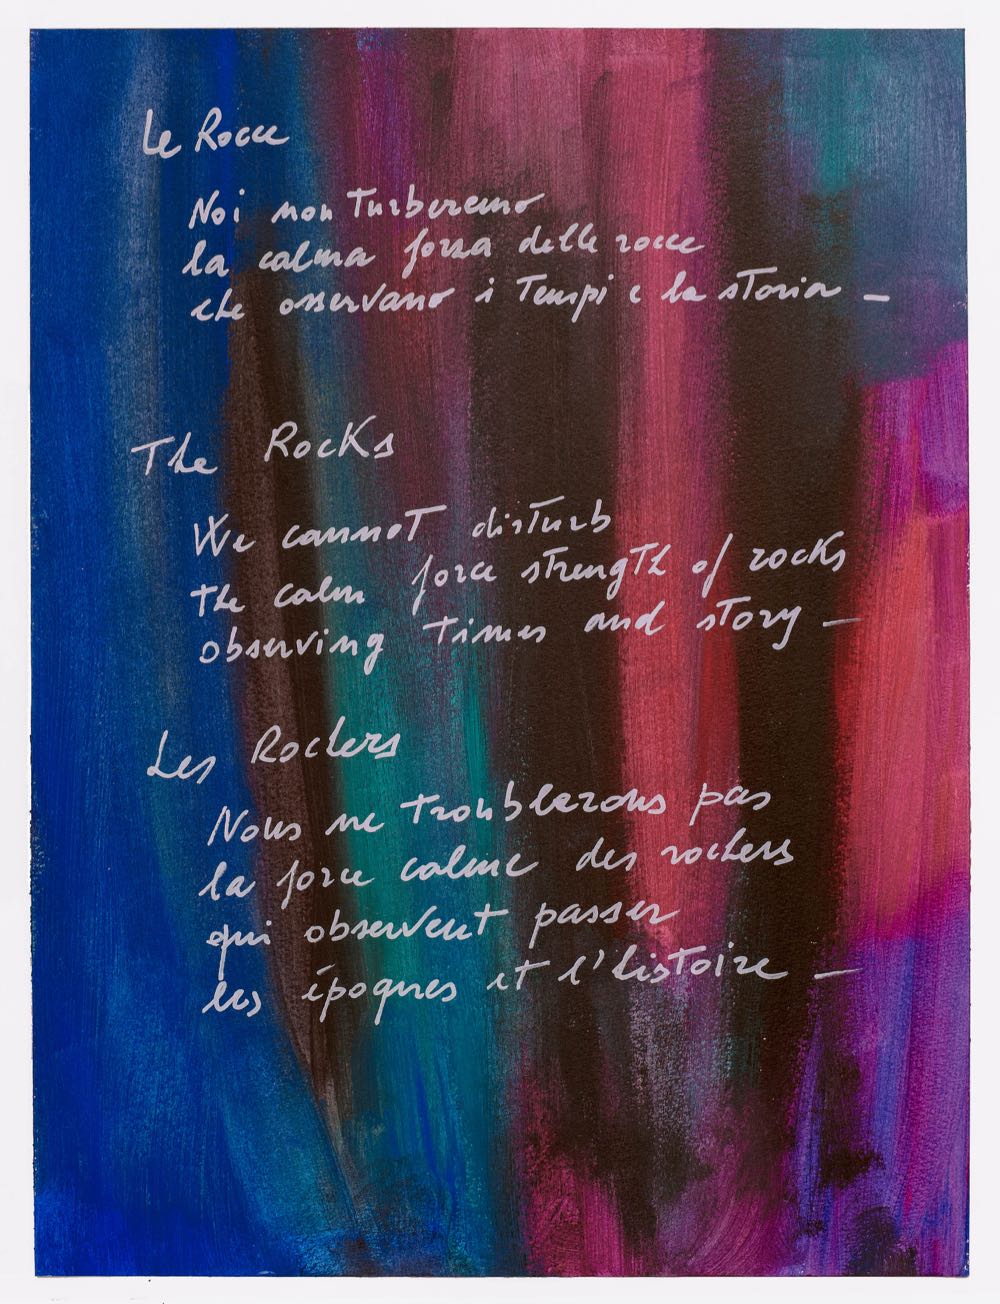 Le Rocce
Noi non Turberemo
la calma forza delle rocce
che osservano i Tempi e la storia —
The Rocks
We cannot disturb
the calm force strength of rocks
observing times and story —
Les Rochers
Nous ne troublerons pas
la force calme des rochers
qui observent passer
les époques et l'histoire —